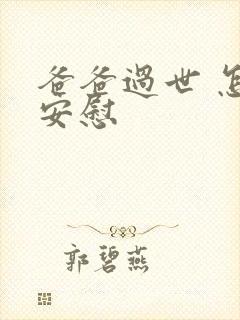 爸爸過世 怎
安慰
郭碧燕